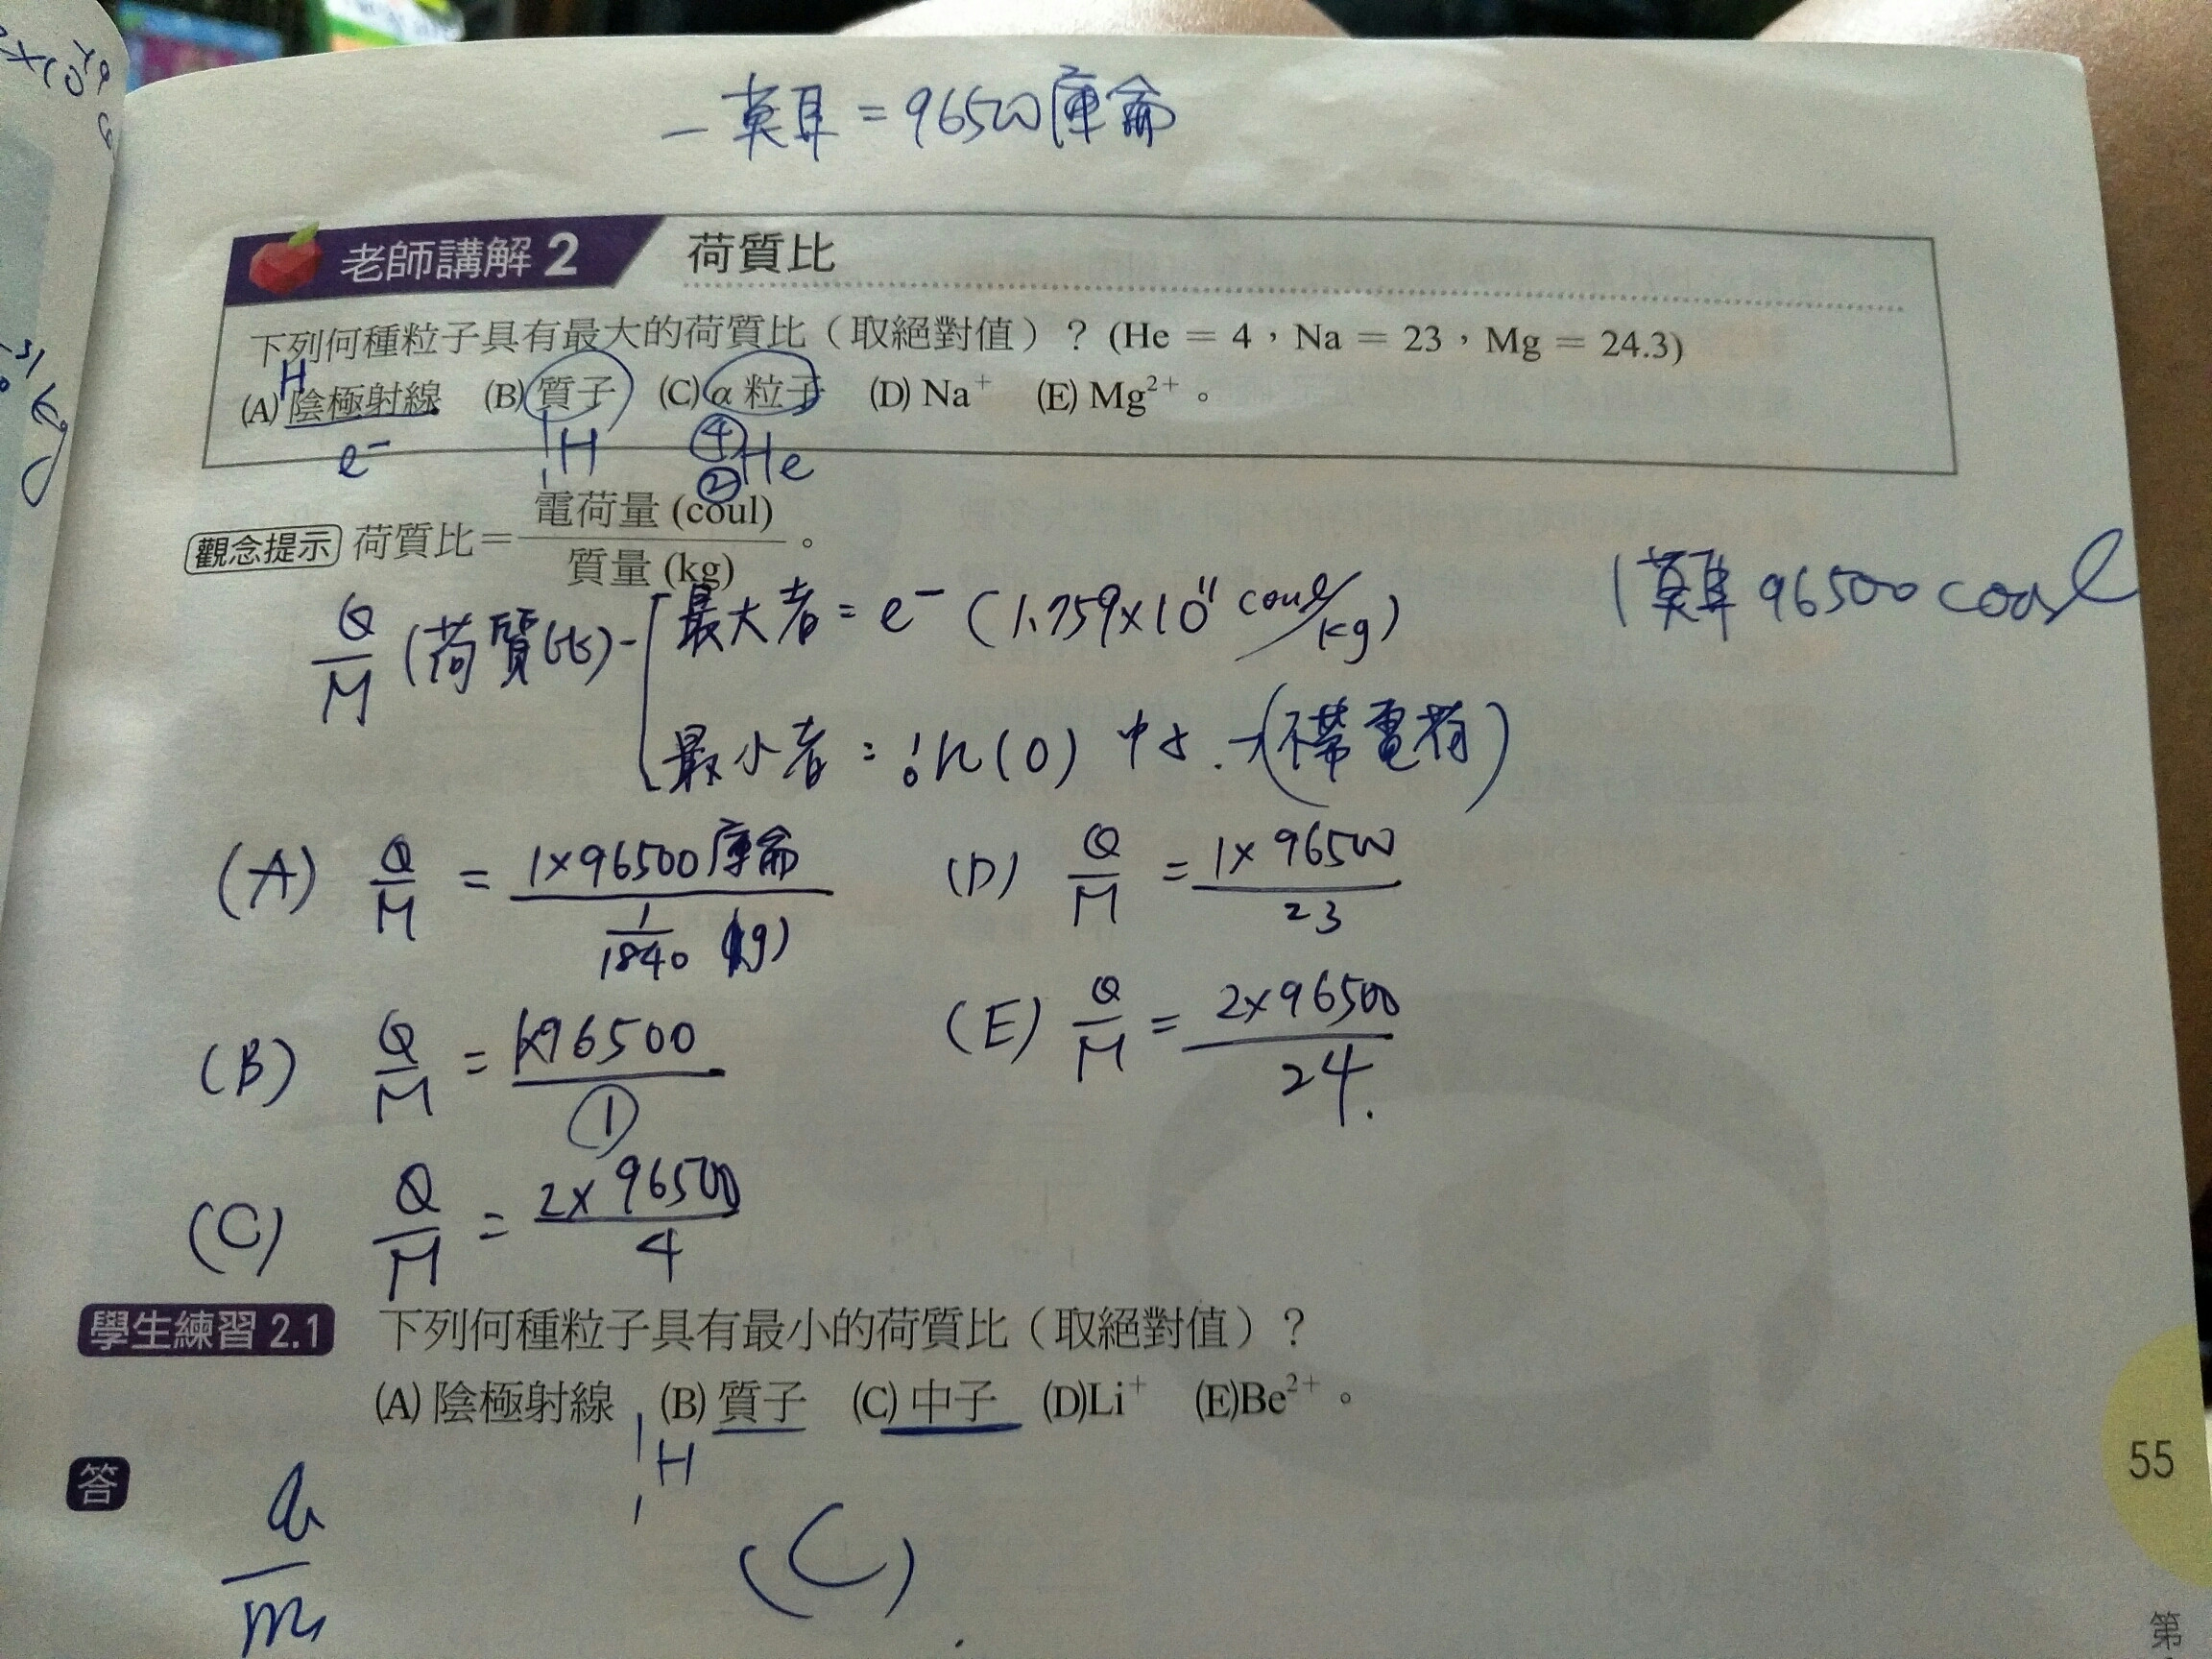 一莫耳 = 96500庫侖
老師講解 2 荷質比
下列何種粒子具有最大的荷質比（取絕對值）？(He = 4，Na = 23，Mg = 24.3)
H
(A) 陰極射線 (B) 質子 (C) α 粒子 (D) Na⁺ (E) Mg²⁺。
e⁻ ¹₁H ⁴₂He
觀念提示 荷質比＝電荷量 (coul)/質量 (kg)。
1莫耳 96500 coul
Q/M (荷質比) - 最大者 = e⁻ (1.759×10¹¹ coul/kg)
最小者 = ¹₀n (0) 中子 . → (不帶電荷)
(A) Q/M = 1×96500庫侖 / (1/1840) (g)
(D) Q/M = 1×96500 / 23
(B) Q/M = 1×96500 / ①
(E) Q/M = 2×96500 / 24.
(C) Q/M = 2×96500 / 4
學生練習 2.1 下列何種粒子具有最小的荷質比（取絕對值）？
(A) 陰極射線 (B) 質子 (C) 中子 (D)Li⁺ (E)Be²⁺。
¹₁H
答
(C)
55
第